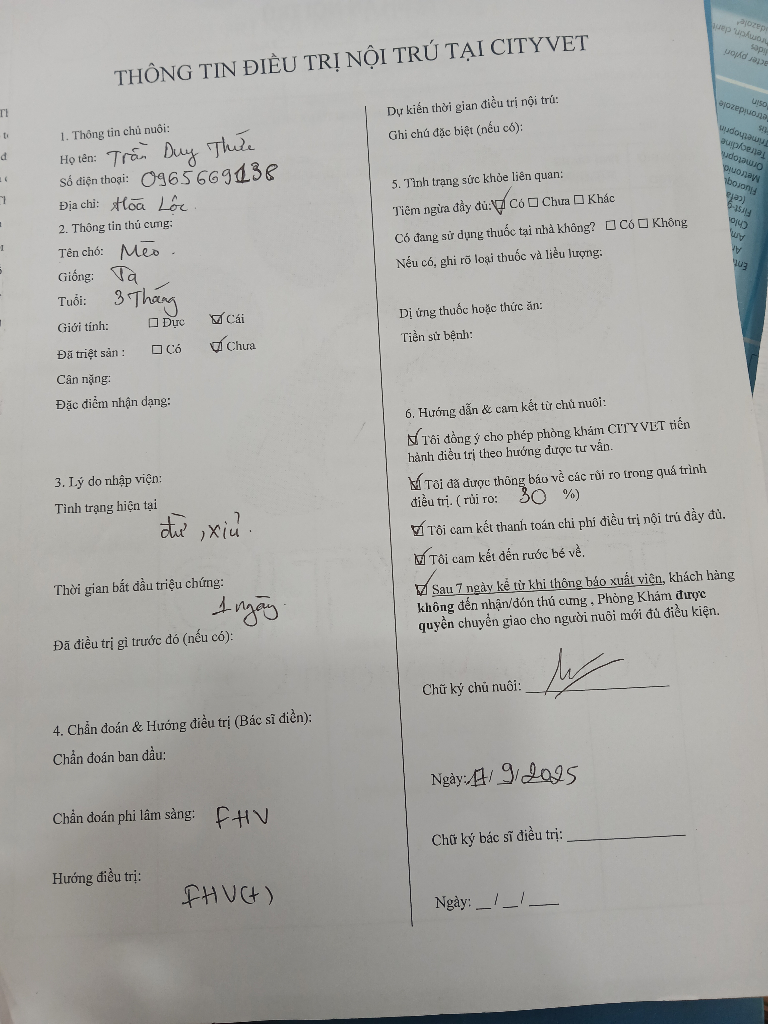 THÔNG TIN ĐIỀU TRỊ NỘI TRÚ TẠI CITYVET
1. Thông tin chủ nuôi:
Họ tên: Trần Duy Thức
Số điện thoại: 0965669138
Địa chỉ: Hoà Lộc
2. Thông tin thú cưng:
Tên chó: Mèo.
Giống: Ta
Tuổi: 3 Tháng
Giới tính: ☐ Đực ☑ Cái
Đã triệt sản : ☐ Có ☑ Chưa
Cân nặng:
Đặc điểm nhận dạng:
3. Lý do nhập viện:
Tình trạng hiện tại
đừ, xỉu.
Thời gian bắt đầu triệu chứng:
1 ngày.
Đã điều trị gì trước đó (nếu có):
4. Chẩn đoán & Hướng điều trị (Bác sĩ điền):
Chẩn đoán ban đầu:
Chẩn đoán phi lâm sàng: FHV
Hướng điều trị:
FHV(+)
Dự kiến thời gian điều trị nội trú:
Ghi chú đặc biệt (nếu có):
5. Tình trạng sức khỏe liên quan:
Tiêm ngừa đầy đủ: ☑ Có ☐ Chưa ☐ Khác
Có đang sử dụng thuốc tại nhà không? ☐ Có ☐ Không
Nếu có, ghi rõ loại thuốc và liều lượng:
Dị ứng thuốc hoặc thức ăn:
Tiền sử bệnh:
6. Hướng dẫn & cam kết từ chủ nuôi:
☑ Tôi đồng ý cho phép phòng khám CITYVET tiến
hành điều trị theo hướng được tư vấn.
☑ Tôi đã được thông báo về các rủi ro trong quá trình
điều trị. ( rủi ro: 30 %)
☑ Tôi cam kết thanh toán chi phí điều trị nội trú đầy đủ.
☑ Tôi cam kết đến rước bé về.
☑ Sau 7 ngày kể từ khi thông báo xuất viện, khách hàng
không đến nhận/đón thú cưng , Phòng Khám được
quyền chuyển giao cho người nuôi mới đủ điều kiện.
Chữ ký chủ nuôi:
Ngày: 17/ 9/ 2025
Chữ ký bác sĩ điều trị: ____
Ngày: __/__/___